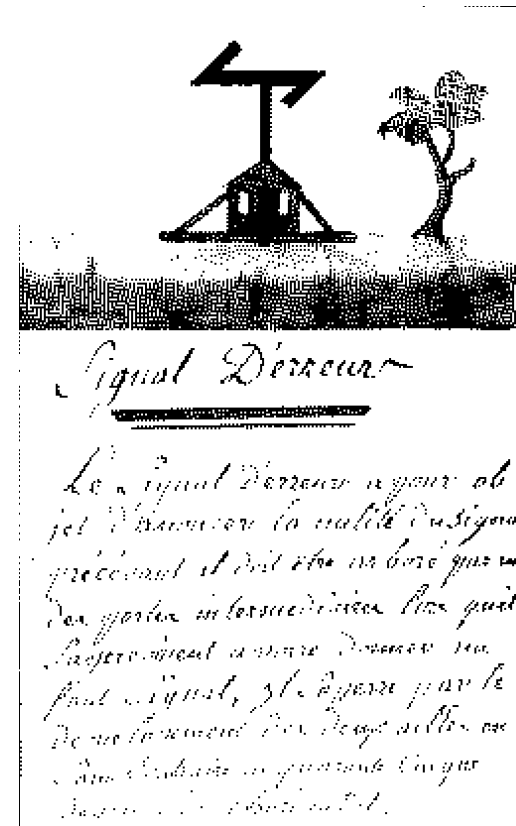 Signal D'erreur
Le Signal D'erreur a pour ob
jet D'annoncer la nulité du Signal
précédant et doit être arboré par
des postes intermédiaires lors qu'il
s'apercoivent avoir donner un
faux Signal, il s'opere par le
des deux ailles en
Sens quarante Cinque